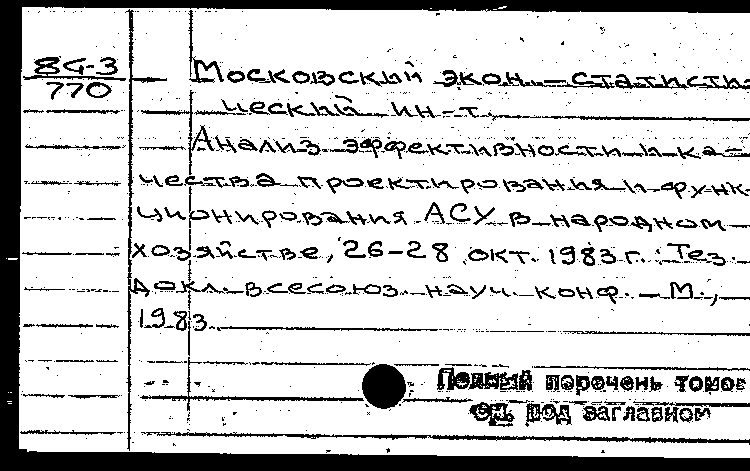 84-3
770
Московский экон.-статисти-
ческий ин-т.
Анализ эффективности и ка-
чества проектирования и функ-
ционирования АСУ в народном
хозяйстве, 26-28 окт. 1983 г.: Тез.
докл. всесоюз. науч. конф. - М.,
1983.
Полный перечень томов
см. под заглавном